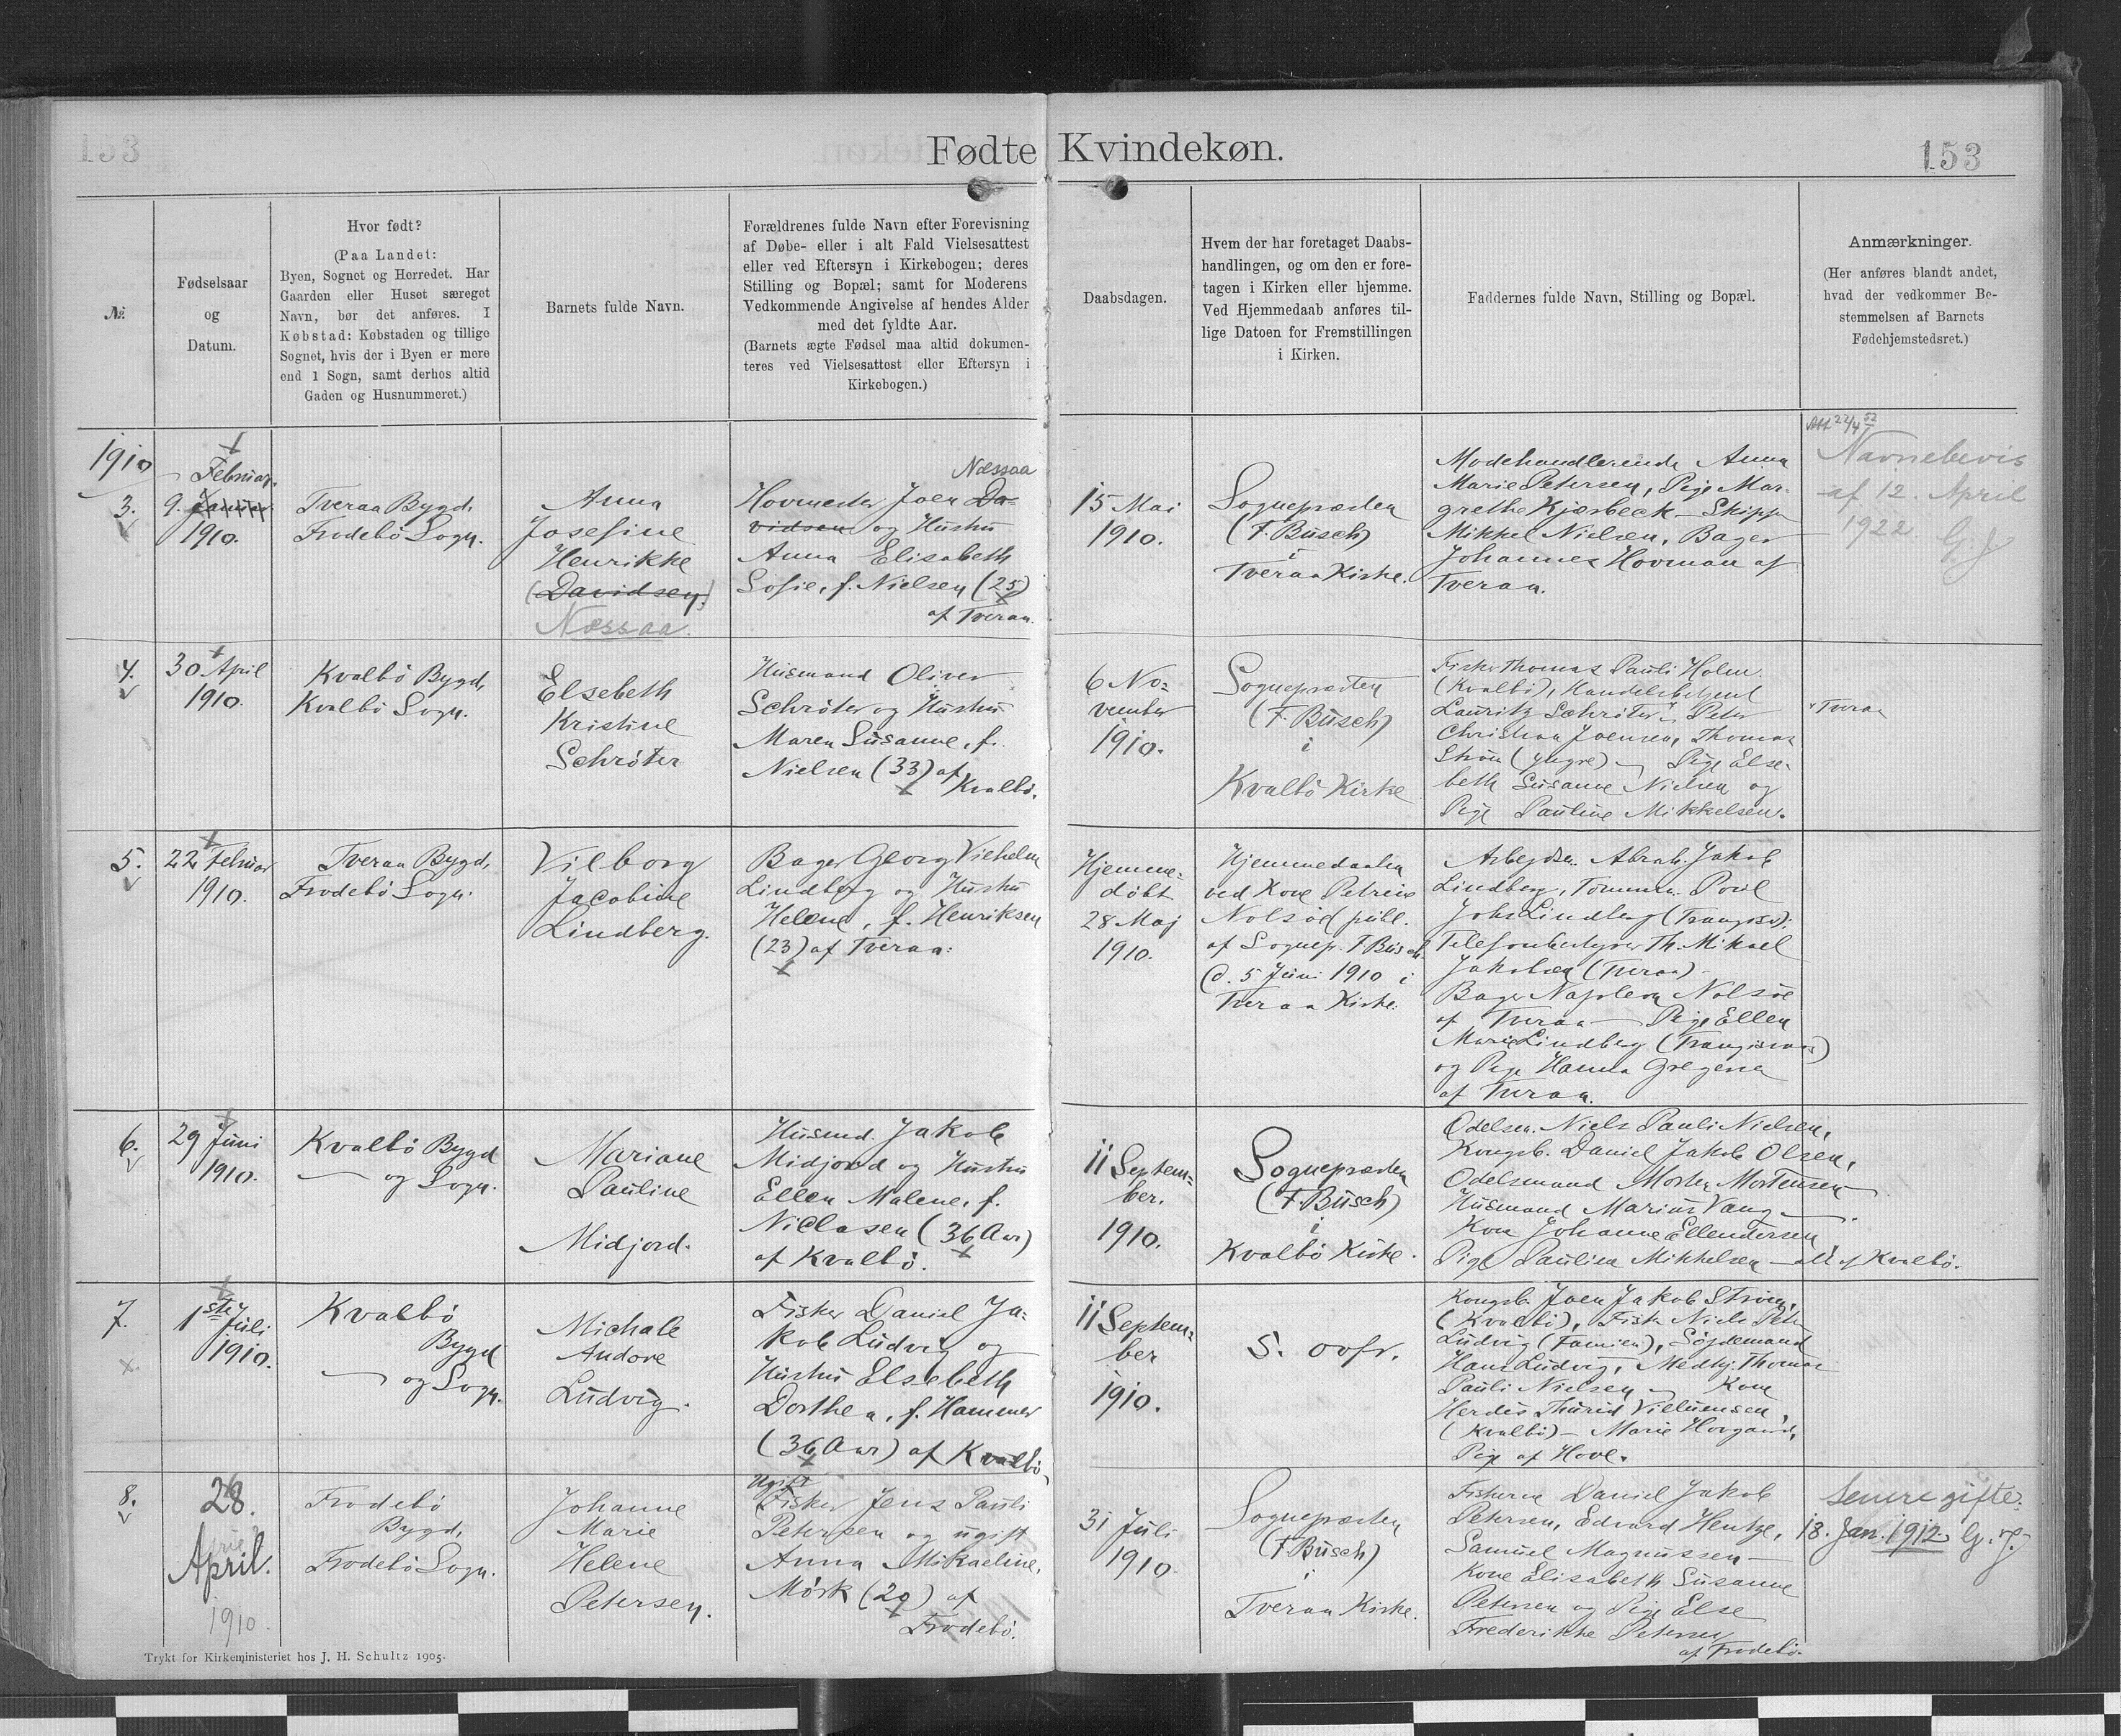 153
Fødte Kvindekøn.
153
№
Fødselsaar
og
Datum.
Hvor født?
(Paa Landet:
Byen, Sognet og Herredet. Har
Gaarden eller Huset særeget
Navn, bør det anføres. I
Købstad: Købstaden og tillige
Sognet, hvis der i Byen er mere
end 1 Sogn, samt derhos altid
Gaden og Husnummeret.)
Barnets fulde Navn.
Forældrenes fulde Navn efter Forevisning
af Døbe- eller i alt Fald Vielsesattest
eller ved Eftersyn i Kirkebogen; deres
Stilling og Bopæl; samt for Moderens
Vedkommende Angivelse af hendes Alder
med det fyldte Aar.
(Barnets ægte Fødsel maa altid dokumen-
teres ved Vielsesattest eller Eftersyn i
Kirkebogen.)
Daabsdagen.
Hvem der har foretaget Daabs-
handlingen, og om den er fore-
tagen i Kirken eller hjemme.
Ved Hjemmedaab anføres til-
lige Datoen for Fremstillingen
i Kirken.
Faddernes fulde Navn, Stilling og Bopæl.
Anmærkninger.
(Her anføres blandt andet,
hvad der vedkommer Be-
stemmelsen af Barnets
Fødehjemstedsret.)
1910
3.
Februar.
9. Januar
1910.
Tveraa Bygd,
Frodebö Sogn.
Anna
Josefine
Henrikke
(Davidsen)
Næssaa.
Næssaa
Hovmester Joen Da-
vidsen og Hustru
Anna Elisabeth
Sofie, f. Nielsen (25)
af Tveraa.
15 Mai
1910.
Sognepræsten
(F. Busch)
i
Tveraa Kirke.
Modehandlerinde Anna
Marie Petersen, Pige Mar-
grethe Kjærbeck - Skipper
Mikkel Nielsen, Bager
Johannes Hovman af
Tveraa.
Att 22/4 52
Navnebevis
af 12. April
1922. G. J
4.
30 April
1910.
Kvalbö Bygd,
Kvalbö Sogn.
Elsebeth
Kristine
Schröter
Husmand Oliver
Schröter og Hustru
Maren Susanne, f.
Nielsen (33) af
Kvalbö.
6 No-
vember
1910.
Sognepræsten
(F. Busch)
i
Kvalbö Kirke
Fisker Thomas Pauli Holm
(Kvalbö), Handelsbetjent
Lauritz Schröter, Peter
Christian Joensen, Thomas
Ström (yngre) - Pige Else-
beth Susanne Nielsen og
Pige Pauline Mikkelsen.
Tveraa
5.
22 Februar
1910.
Tveraa Bygd,
Frodebö Sogn.
Vilborg
Jacobine
Lindberg.
Bager Georg Vilhelm
Lindberg og Hustru
Helene, f. Henriksen
(23) af Tveraa.
Hjemme-
döbt
28 Maj
1910.
Hjemmedaaben
ved Kone Petrine
Nolsöe publ.
af Sognep. F Busch
d. 5 Juni 1910 i
Tveraa Kirke.
Arbejdsm. Abrah. Jakob
Lindberg, Tömmerm. Poul
Johs Lindberg (Trangisv):
Telefonbestyrer Th. Mikael
Jakobsen (Tveraa)
Bager Napoleon Nolsöe
af Tveraa - Pige Ellen
Marie Lindberg (Trangisvaag)
og Pige Hanna Gregersen
af Tveraa.
6.
29 Juni
1910.
Kvalbö Bygd
og Sogn.
Mariane
Pauline
Midjord.
Husmd. Jakob
Midjord og Hustru
Ellen Malene, f.
Niclasen (36 Aar)
af Kvalbö.
11 Septem-
ber.
1910.
Sognepræsten
(F. Busch)
i
Kvalbö Kirke.
Odelsm. Niels Pauli Nielsen,
Kongsb. Daniel Jakob Olsen,
Odelsmand Morten Mortensen
Husmand Marius Vang
Kone Johanne Ellendersen
Pige Paulina Mikkelsen - alle af Kvalbö.
7.
1ste Juli
1910.
Kvalbö
Bygd
og Sogn.
Michale
Andore
Ludvig.
Fisker Daniel Ja-
kob Ludvig og
Hustru Elsebeth
Dorthea, f. Hammer
(36 Aar) af Kvalbö.
11 Septem-
ber
1910.
S. ovfr.
Kongsb. Joen Jakob Ström,
(Kvalbö), Fisker Niels Peter
Ludvig (Famien),
Hans Ludvig, Thomas
Pauli Nielsen - Kone
Herdis Thurid
(Kvalbö) - Marie Hovgaard,
Pige af Hove.
8.
28.
April.
1910.
Frodebö
Bygd,
Frodebö Sogn.
Johanne
Marie
Helene
Petersen.
Ugift
Fisker Jens Pauli
Petersen og ugift
Anna Mikaeline,
Mörk (20) af
Frodebö.
31 Juli
1910.
Sognepræsten
(F. Busch)
i
Tveraa Kirke.
Fiskerne Daniel Jakob
Petersen, Edvard Hentze,
Samuel Magnussen -
Kone Elisabeth Susanne
Petersen og Pige Else
Frederikke Petersen
af Frodebö.
Senere gifte.
18. Jan. 1912. G. J.
Trykt for Kirkeministeriet hos J. H. Schultz 1905.